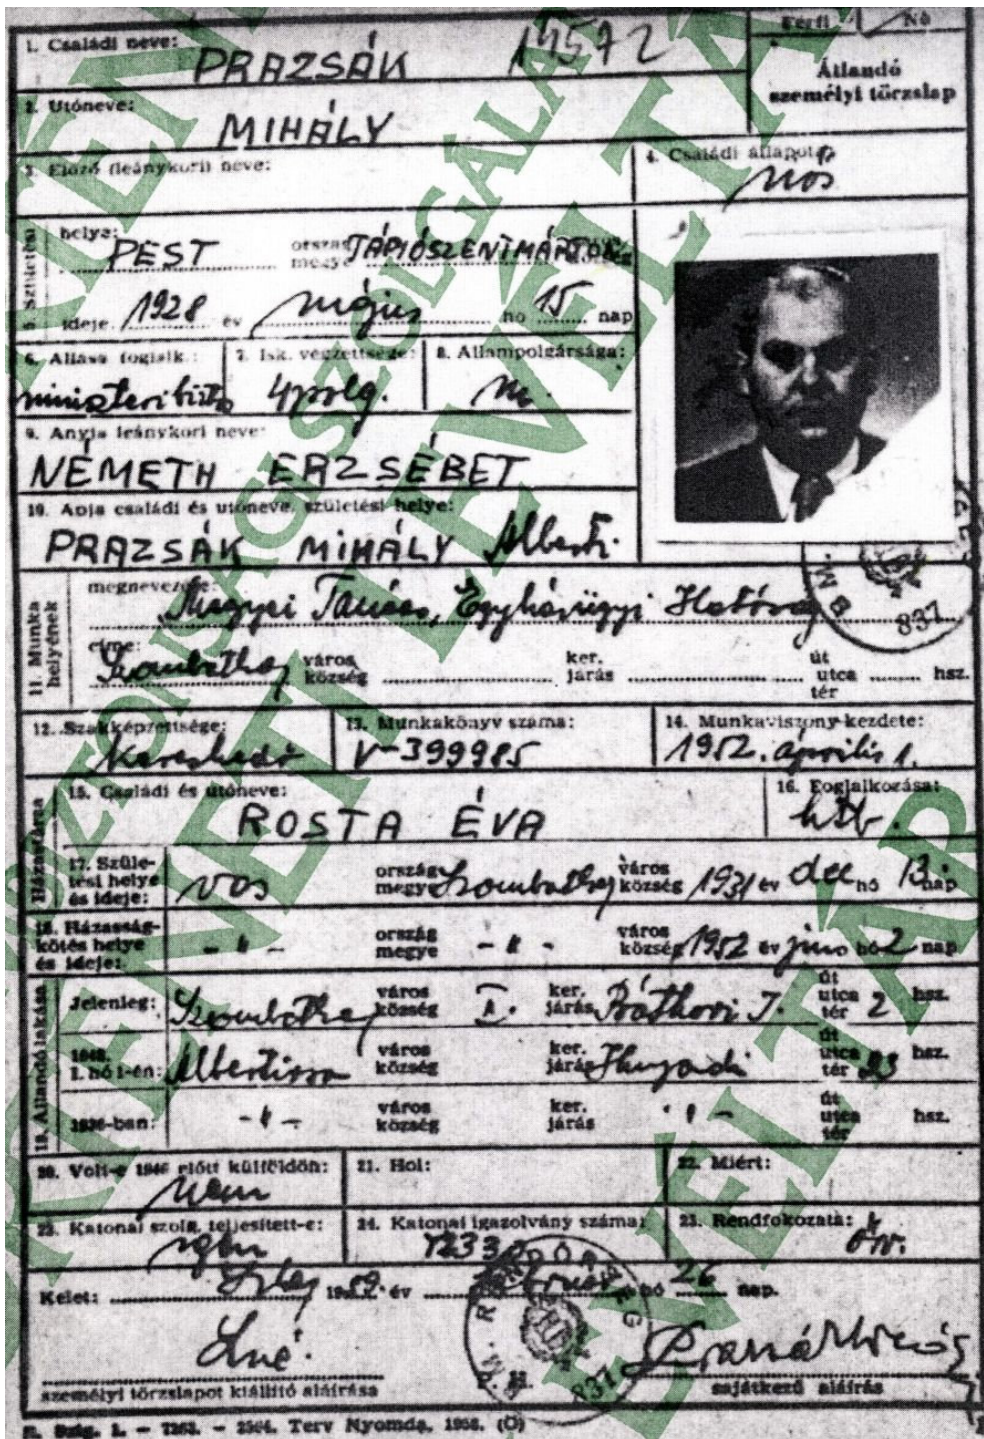 Férfi Nő
1. Családi neve: PRAZSÁK 14572
Állandó
személyi törzslap
2. Utóneve: MIHÁLY
3. Előző (leánykori) neve:
4. Családi állapota: nős
5. Születési
helye: PEST ország megye TÁPIÓSZENTMÁRTON
ideje: 1928 év május hó 15 nap
6. Állása foglalk.: ministeri bizt.
7. Isk. végzettsége: 4 polg.
8. Állampolgársága: m.
9. Anyja leánykori neve:
NÉMETH ERZSÉBET
10. Apja családi és utóneve, születési helye:
PRAZSÁK MIHÁLY Alberti.
11. Munka helyének
megnevezése: Megyei Tanács, Egyházügyi
címe: Szombathely város község ker. járás út utca tér hsz.
12. Szakképzettsége: Kereskedő
13. Munkakönyv száma: V-399985
14. Munkaviszony kezdete: 1952. április 1.
Házastársa
15. Családi és utóneve:
ROSTA ÉVA
16. Foglalkozása: htb.
17. Születési helye és ideje: Vas ország megye Szombathely város község 1931 év dec hó 13 nap
18. Házasságkötés helye és ideje: - " - ország megye - " - város község 1952 év jún hó 2 nap
19. Állandó lakása
Jelenleg: Szombathely város község I. ker. járás Báthori I. út utca tér 2 hsz.
1948. I. hó 1-én: Albertirsa város község ker. járás Hunyadi út utca tér hsz.
1936-ban: - " - város község ker. járás - " - út utca tér hsz.
20. Volt-e 1946 előtt külföldön: nem
21. Hol:
22. Miért:
23. Katonai szolg. teljesített-e: igen
24. Katonai igazolvány száma:
25. Rendfokozata: őv.
Kelet: 1959. év február hó 26 nap.
személyi törzslapot kiállító aláírása
sajátkezű aláírás
B.M. RENDŐRSÉG
837
B. Szig. 1. — 7263. — 2504. Terv Nyomda, 1958. (Ö)